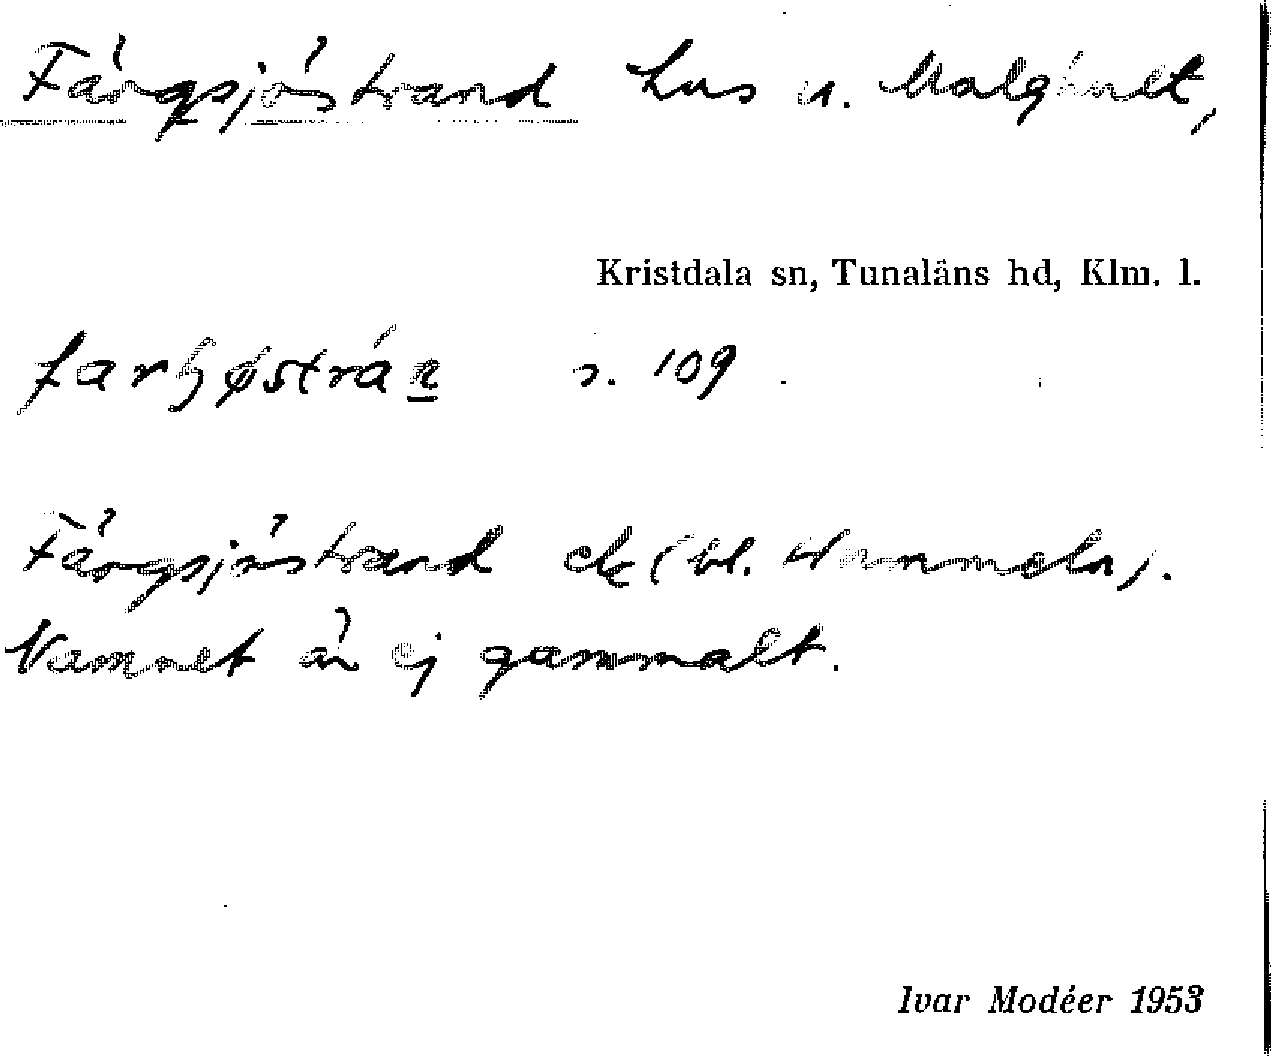 Färgsjöstrand hus u. Malghult,
Kristdala sn, Tunaläns hd, Klm. l.
s. 109
Färgsjöstrand ek (bl. Hummeln).
Namnet är ej gammalt.
Ivar Modéer 1953